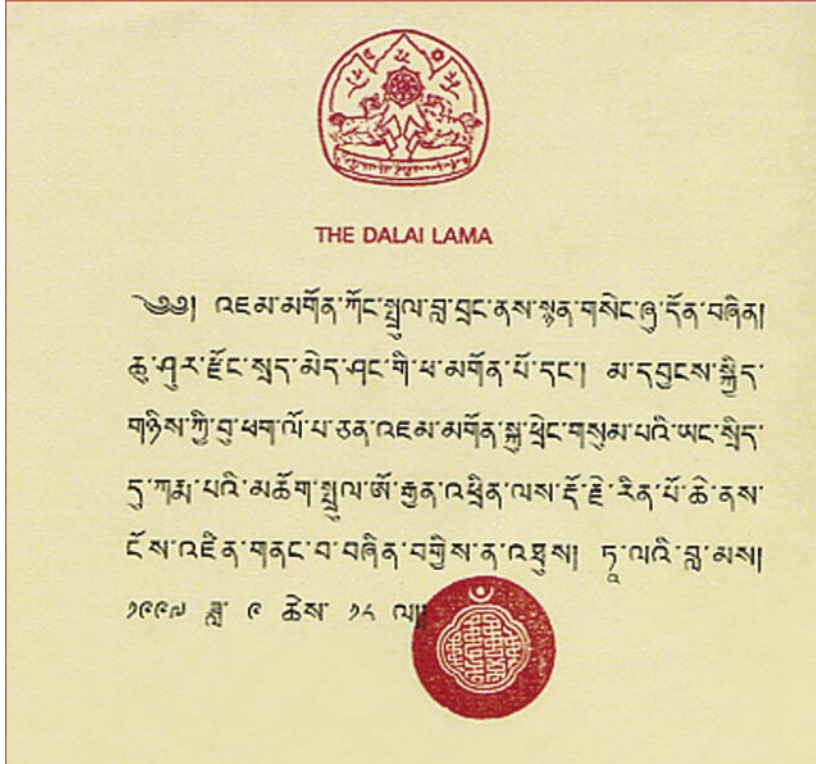 THE DALAI LAMA
༄༅། འཇམ་མགོན་ཀོང་སྤྲུལ་བླ་བྲང་ནས་སྙན་གསེང་ཞུ་དོན་བཞིན།
ཆུ་ཤུར་རྫོང་སྲད་མེད་ཤང་གི་ཕ་མགོན་པོ་དང་། མ་དབྱངས་སྐྱིད་
གཉིས་ཀྱི་བུ་ཕག་ལོ་པ་ཅན་འཇམ་མགོན་སྐུ་ཕྲེང་གསུམ་པའི་ཡང་སྲིད་
དུ་ཀརྨ་པའི་མཆོག་སྤྲུལ་ཨོ་རྒྱན་འཕྲིན་ལས་རྡོ་རྗེ་རིན་པོ་ཆེ་ནས་
ངོས་འཛིན་གནང་བ་བཞིན་བགྱིས་ན་འཐུས། ཏཱ་ལའི་བླ་མས།
༡༩༩༧ ཟླ་ ༩ ཚེས་ ༡༨ ལ།།